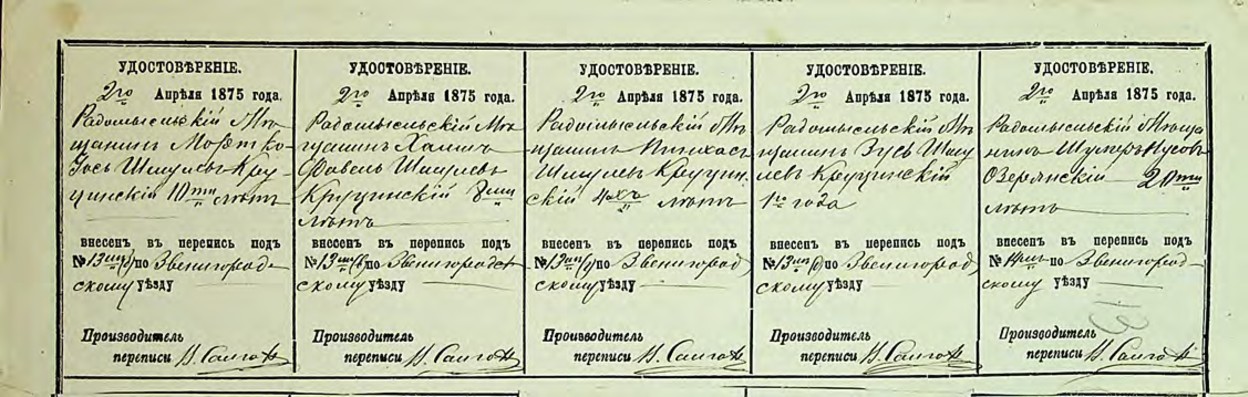 УДОСТОВѢРЕНІЕ.
2го Апрѣля 1875 года.
Радомысльскій Мѣ
щанинъ Мортко
Іось Шмулевъ Кру
чинскій 10ти лѣтъ
внесенъ въ перепись подъ
№ 13 по Звенигород
скому уѣзду
Производитель
переписи
УДОСТОВѢРЕНІЕ.
2го Апрѣля 1875 года.
Радомысльскій Мѣ
щанинъ Хаимъ
Файвель Шмулевъ
Кручинскій 8ми
лѣтъ
внесенъ въ перепись подъ
№ 13 по Звенигород
скому уѣзду
Производитель
переписи
УДОСТОВѢРЕНІЕ.
2го Апрѣля 1875 года.
Радомысльскій Мѣ
щанинъ Пинхасъ
Шмулевъ Кручин
скій 4охъ лѣтъ
внесенъ въ перепись подъ
№ 13 по Звенигород
скому уѣзду
Производитель
переписи
УДОСТОВѢРЕНІЕ.
2го Апрѣля 1875 года.
Радомысльскій Мѣ
щанинъ Зусь Шму
левъ Кручинскій
1го года
внесенъ въ перепись подъ
№ 13 по Звенигород
скому уѣзду
Производитель
переписи
УДОСТОВѢРЕНІЕ.
2го Апрѣля 1875 года.
Радомысльскій Мѣща
нинъ Шулимъ Нусовъ
Озерянскій 20ти
лѣтъ
внесенъ въ перепись подъ
№ 14 по Звенигород
скому уѣзду
Производитель
переписи